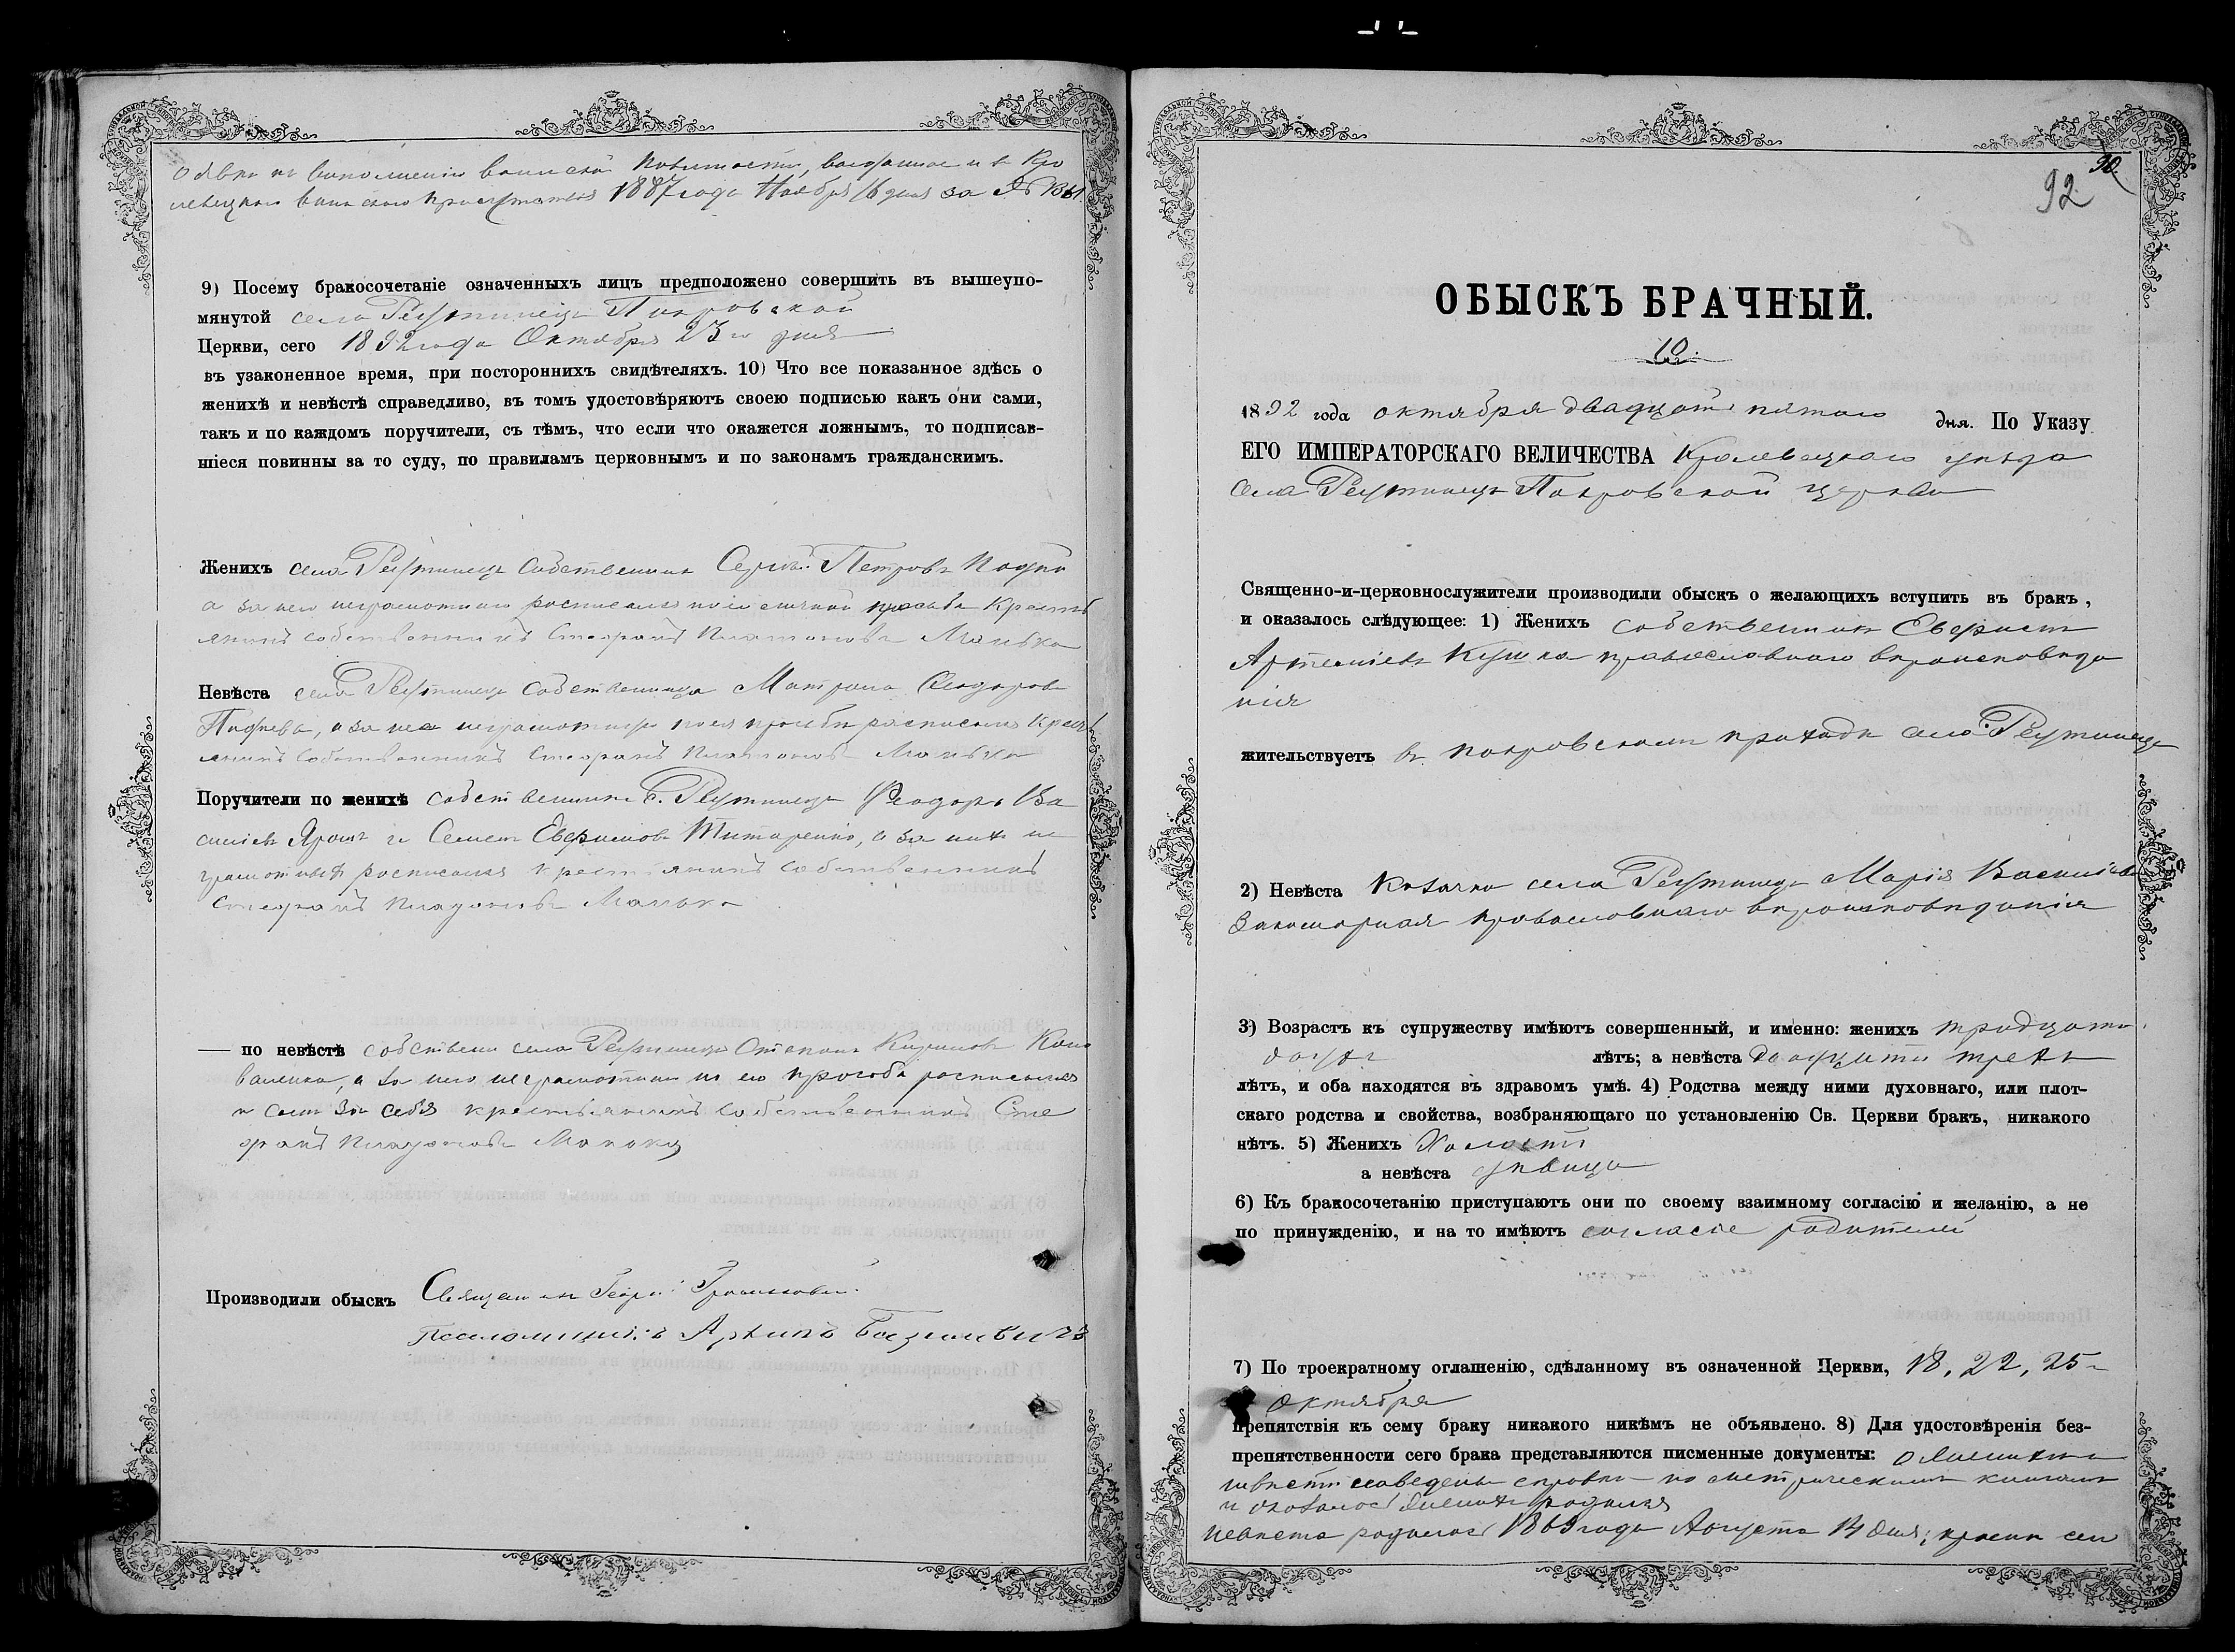 о явке къ выполненію воинской повинности, выданное изъ Кро
левецкаго воинскаго присутствія 1887 года Ноября 16 дня за №
9) Посему бракосочетаніе означенныхъ лицъ предположено совершить въ вышеупо-
мянутой села Реутинецъ Покровской
Церкви, сего 1892 года Октября 23го дня
въ узаконенное время, при постороннихъ свидѣтеляхъ. 10) Что все показанное здѣсь о
женихѣ и невѣстѣ справедливо, въ томъ удостовѣряютъ своею подписью какъ они сами,
такъ и по каждомъ поручители, съ тѣмъ, что если что окажется ложнымъ, то подписав-
шіеся повинны за то суду, по правиламъ церковнымъ и по законамъ гражданскимъ.
Женихъ села Реутинецъ собственникъ Сергѣй Петровъ
а за него неграмотнаго росписался по его личной просьбѣ крестьѣ
янинъ собственникъ Стефанъ Платоновъ Манько
Невѣста села Реутинецъ собственница Матрона Феодорова
а за нея неграмотную по ея просьбѣ росписался крестьѣ
янинъ собственникъ Стефанъ Платоновъ Манько
Поручители по женихѣ собственники с. Реутинецъ Феодоръ Ва
силіевъ Ярошъ и Семенъ Евфимовъ Титаренко, а за нихъ не
грамотныхъ росписался крестьянинъ собственникъ
Стефанъ Платоновъ Манько
— по невѣстѣ собственн села Реутинецъ Степанъ Кириловъ Коно
валенко, а за него неграмотнаго по его просьбѣ росписался
и самъ за себя крестьянинъ собственникъ Сте
фанъ Платоновъ Манько
Производили обыскъ Священникъ Георгій
Псаломщикъ
90.
92
ОБЫСКЪ БРАЧНЫЙ.
10.
1892 года октября двадцать пятаго дня. По Указу
ЕГО ИМПЕРАТОРСКАГО ВЕЛИЧЕСТВА Кролевецкаго уѣзда
села Реутинецъ Покровской церкви
Священно-и-церковнослужители производили обыскъ о желающихъ вступить въ бракъ,
и оказалось слѣдующее: 1) Женихъ собственникъ
Артеміевъ Кушка православнаго вѣроисповѣда
нія
жительствуетъ въ Покровскомъ приходѣ села Реутинецъ
2) Невѣста козачка села Реутинецъ Марія Василіева
православнаго вѣроисповѣданія
3) Возрастъ къ супружеству имѣютъ совершенный, и именно: женихъ тридцати
двухъ лѣтъ; а невѣста двадцати трехъ
лѣтъ, и оба находятся въ здравомъ умѣ. 4) Родства между ними духовнаго, или плот-
скаго родства и свойства, возбраняющаго по установленію Св. Церкви бракъ, никакого
нѣтъ. 5) Женихъ Холостъ
а невѣста дѣвица
6) Къ бракосочетанію приступаютъ они по своему взаимному согласію и желанію, а не
по принужденію, и на то имѣютъ согласіе родителей
7) По троекратному оглашенію, сдѣланному въ означенной Церкви, 18, 22, 25
октября
препятствія къ сему браку никакого никѣмъ не объявлено. 8) Для удостовѣренія без-
препятственности сего брака представляются писменные документы: о женихѣ и
невѣстѣ наведены справки по метрическимъ книгамъ
и оказалось женихъ родился
невѣста родилась 1869 года Августа 14 дня;